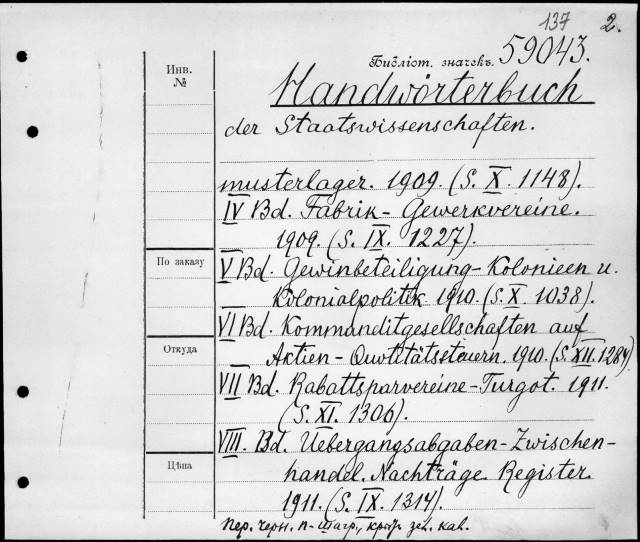 137 2.
Библіот. значекъ. 59043.
Инв.
№
Handwörterbuch
der Staatswissenschaften.
musterlager. 1909. (S. X. 1148).
IV Bd. Fabrik - Gewerkvereine.
1909. (S. IX. 1227).
По заказу
V Bd. Gewinbeteiligung - Kolonieen u.
Kolonialpolitik 1910. (S. X. 1038).
VI Bd. Kommanditgesellschaften auf
Откуда
Aktien - Quotitätsteuern. 1910. (S. XII. 1284).
VII Bd. Rabattsparvereine - Turgot. 1911.
(S. XI. 1306).
VIII. Bd. Uebergangsabgaben - Zwischen-
Цѣна
handel. Nachträge. Register.
1911. (S. IX. 1314).
Пер. черн. п-шагр., крыт. зел. кал.